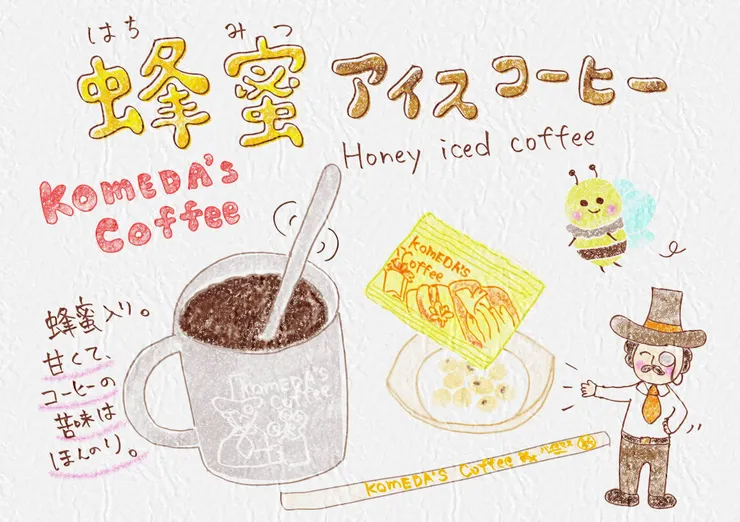 はち みつ
蜂蜜アイスコーヒー
Honey iced coffee
KOMEDA'S
Coffee
蜂蜜入り。
甘くて、
コーヒーの
苦味は
ほんのり。
KOMEDA'S
COF
KOMEDA'S
Coffee
KOMEDA'S Coffee